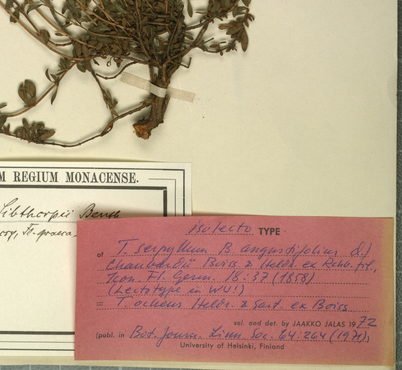 M REGIUM MONACENSE.
Sibthorpii Benth
isolecto TYPE
of T. serpyllum β. angustifolium d.)
Chaubardii Boiss. & Heldr. ex Rchb. fil.,
Icon. Fl. Germ. 18:37 (1858)
(Lectotype in WU!)
= T. ocheus Heldr. & Sart. ex Boiss
sel. and det. by JAAKKO JALAS 1972
(publ. in Bot. Journ. Linn Soc. 64:264 (1971),
University of Helsinki, Finland